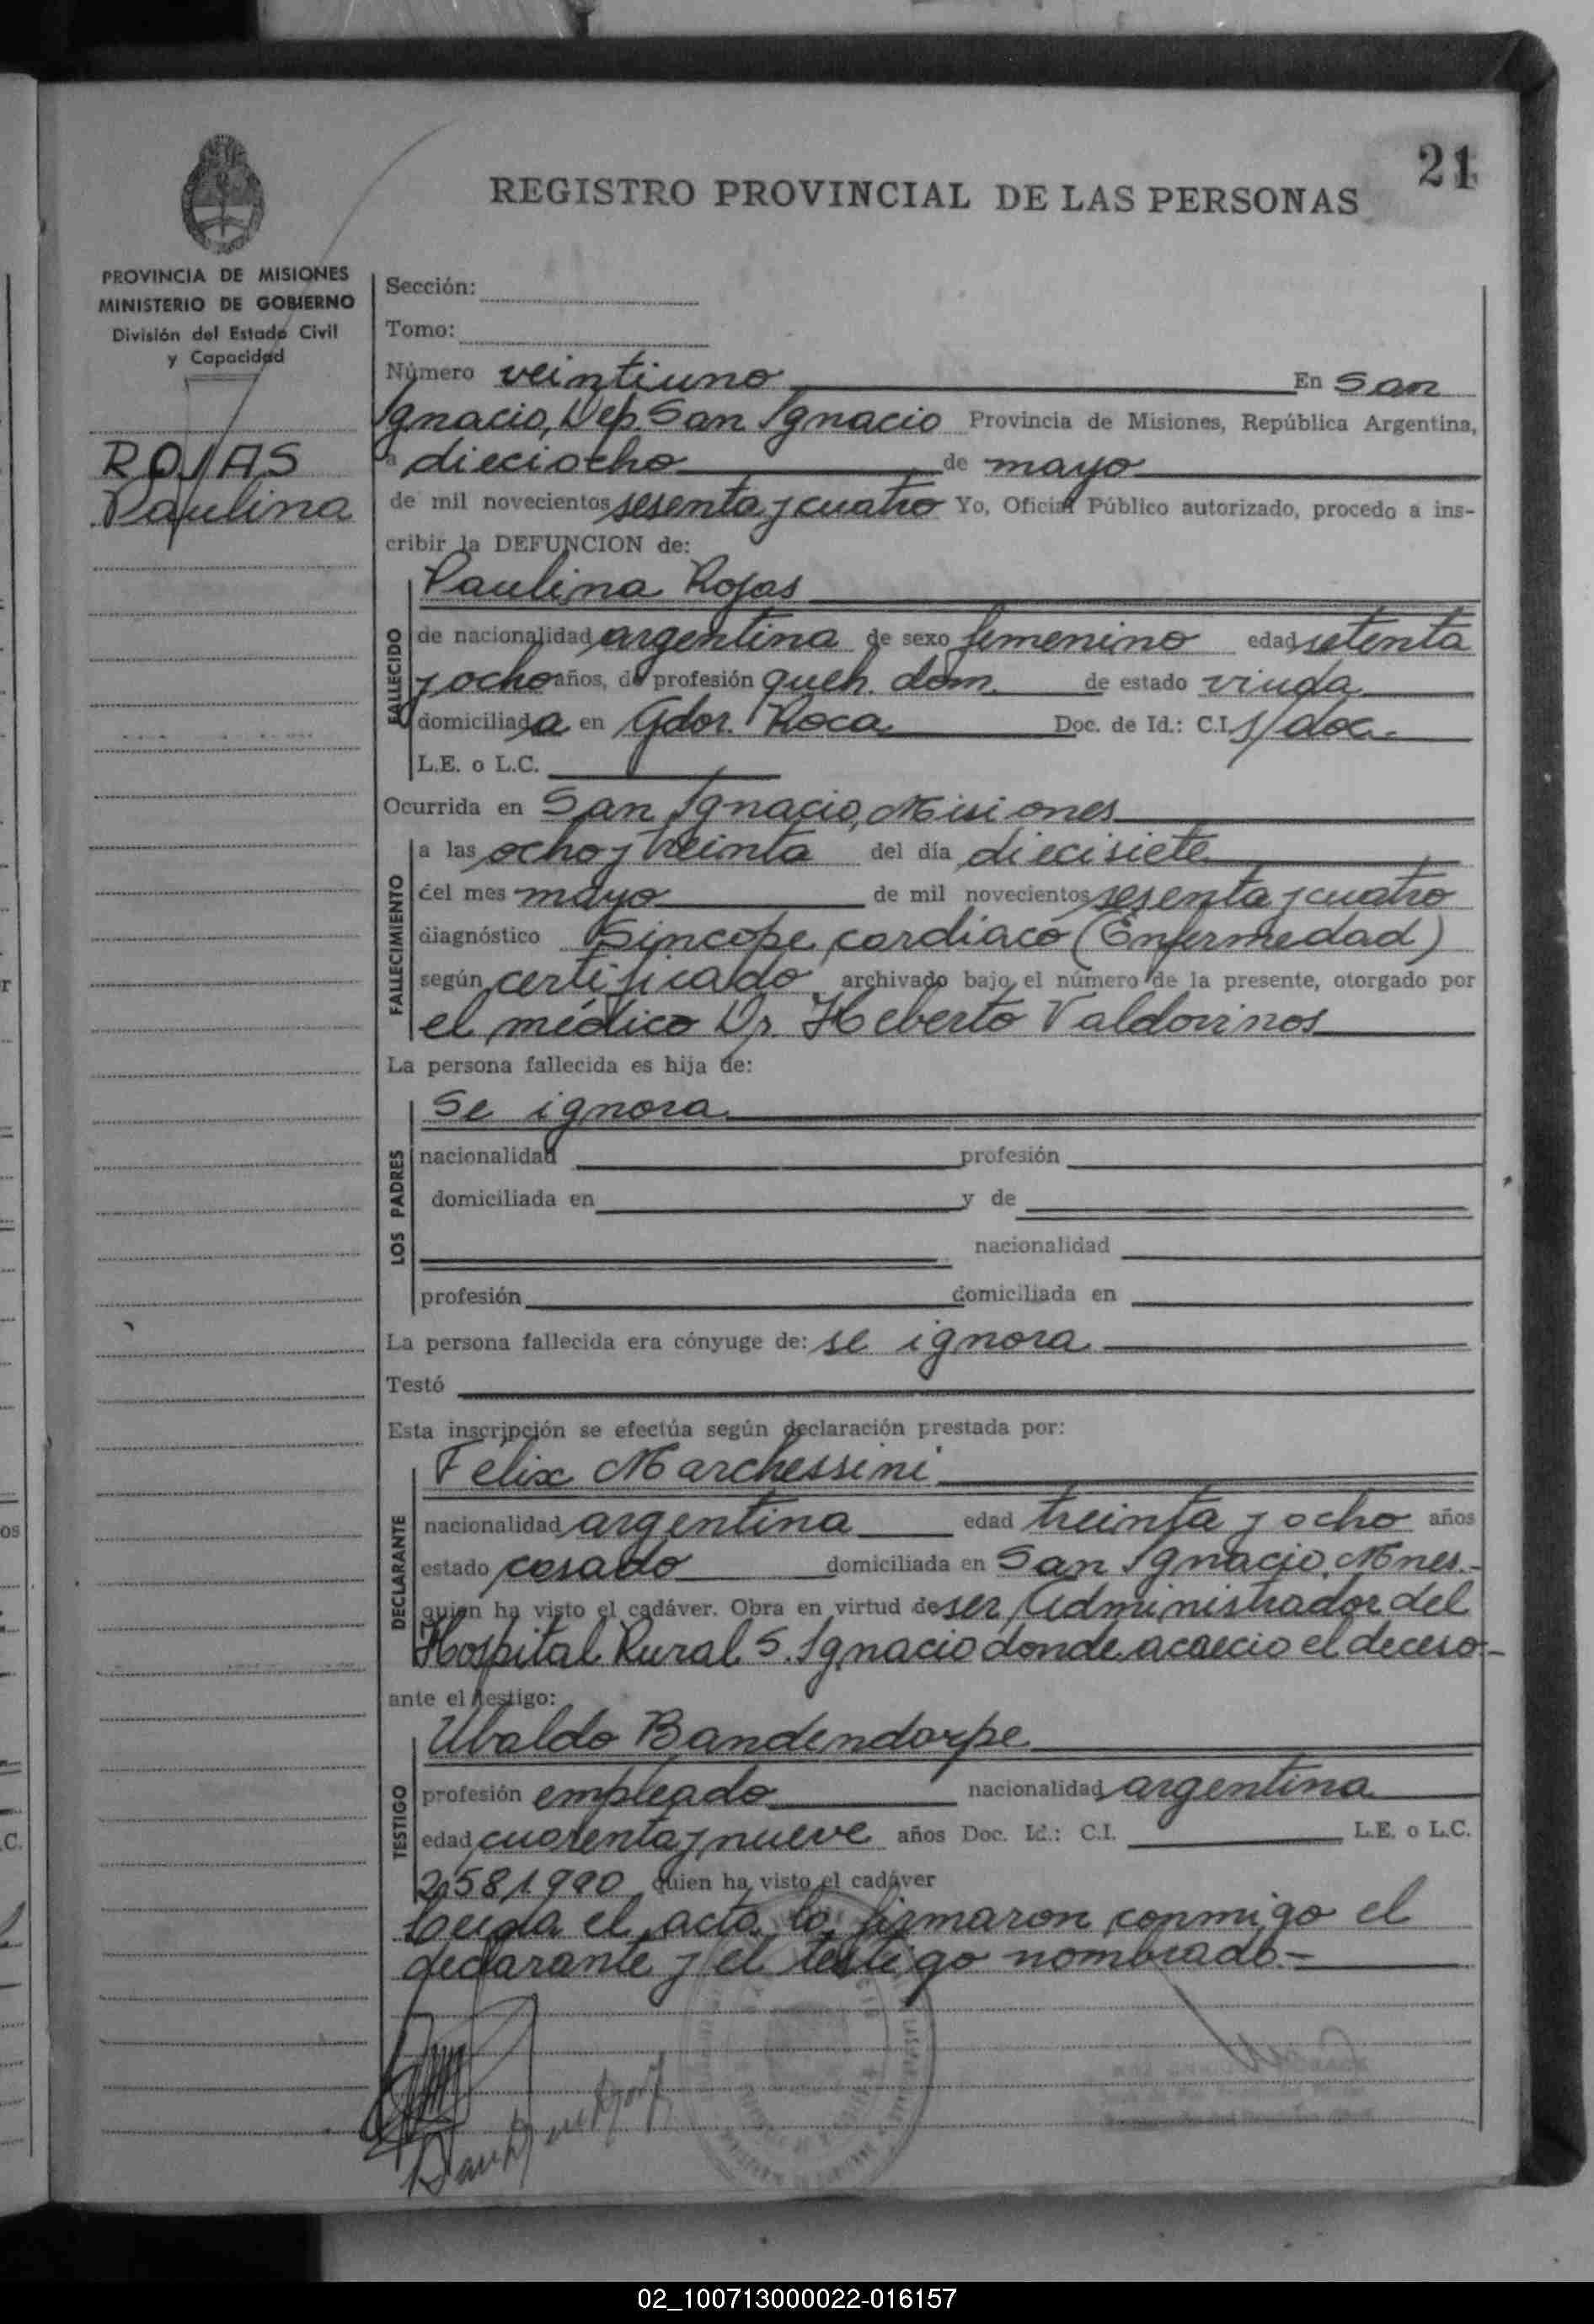 21
REGISTRO PROVINCIAL DE LAS PERSONAS
PROVINCIA DE MISIONES
MINISTERIO DE GOBIERNO
División del Estado Civil
y Capacidad
ROJAS
Paulina
Sección:
Tomo:
Número veintiuno En San
Ignacio, Dep. San Ignacio Provincia de Misiones, República Argentina,
a dieciocho de mayo
de mil novecientos sesenta y cuatro Yo, Oficial Público autorizado, procedo a ins-
cribir la DEFUNCION de:
Paulina Rojas
FALLECIDO
de nacionalidad argentina de sexo femenino edad setenta
y ocho años, de profesión queh. dom. de estado viuda
domiciliada en Gdor. Roca Doc. de Id.: C.I. s/doc.
L.E. o L.C.
Ocurrida en San Ignacio, Misiones
FALLECIMIENTO
a las ocho y treinta del día diecisiete
del mes mayo de mil novecientos sesenta y cuatro
diagnóstico Síncope cardíaco (Enfermedad)
según certificado archivado bajo el número de la presente, otorgado por
el médico Dr. Heberto Valdovinos
La persona fallecida es hija de:
LOS PADRES
Se ignora
nacionalidad profesión
domiciliada en y de
nacionalidad
profesión domiciliada en
La persona fallecida era cónyuge de: se ignora
Testó
Esta inscripción se efectúa según declaración prestada por:
DECLARANTE
Felix Marchessini
nacionalidad argentina edad treinta y ocho años
estado casado domiciliada en San Ignacio, Mnes.-
quien ha visto el cadáver. Obra en virtud de ser Administrador del
Hospital Rural S. Ignacio donde acaecio el deceso.-
ante el testigo:
TESTIGO
Ubaldo Bandendorpe
profesión empleado nacionalidad argentina
edad cuarenta y nueve años Doc. Id.: C.I. L.E. o L.C.
2581990 quien ha visto el cadáver
Leída el acta lo firmaron conmigo el
declarante y el testigo nombrado.-
02_100713000022-016157